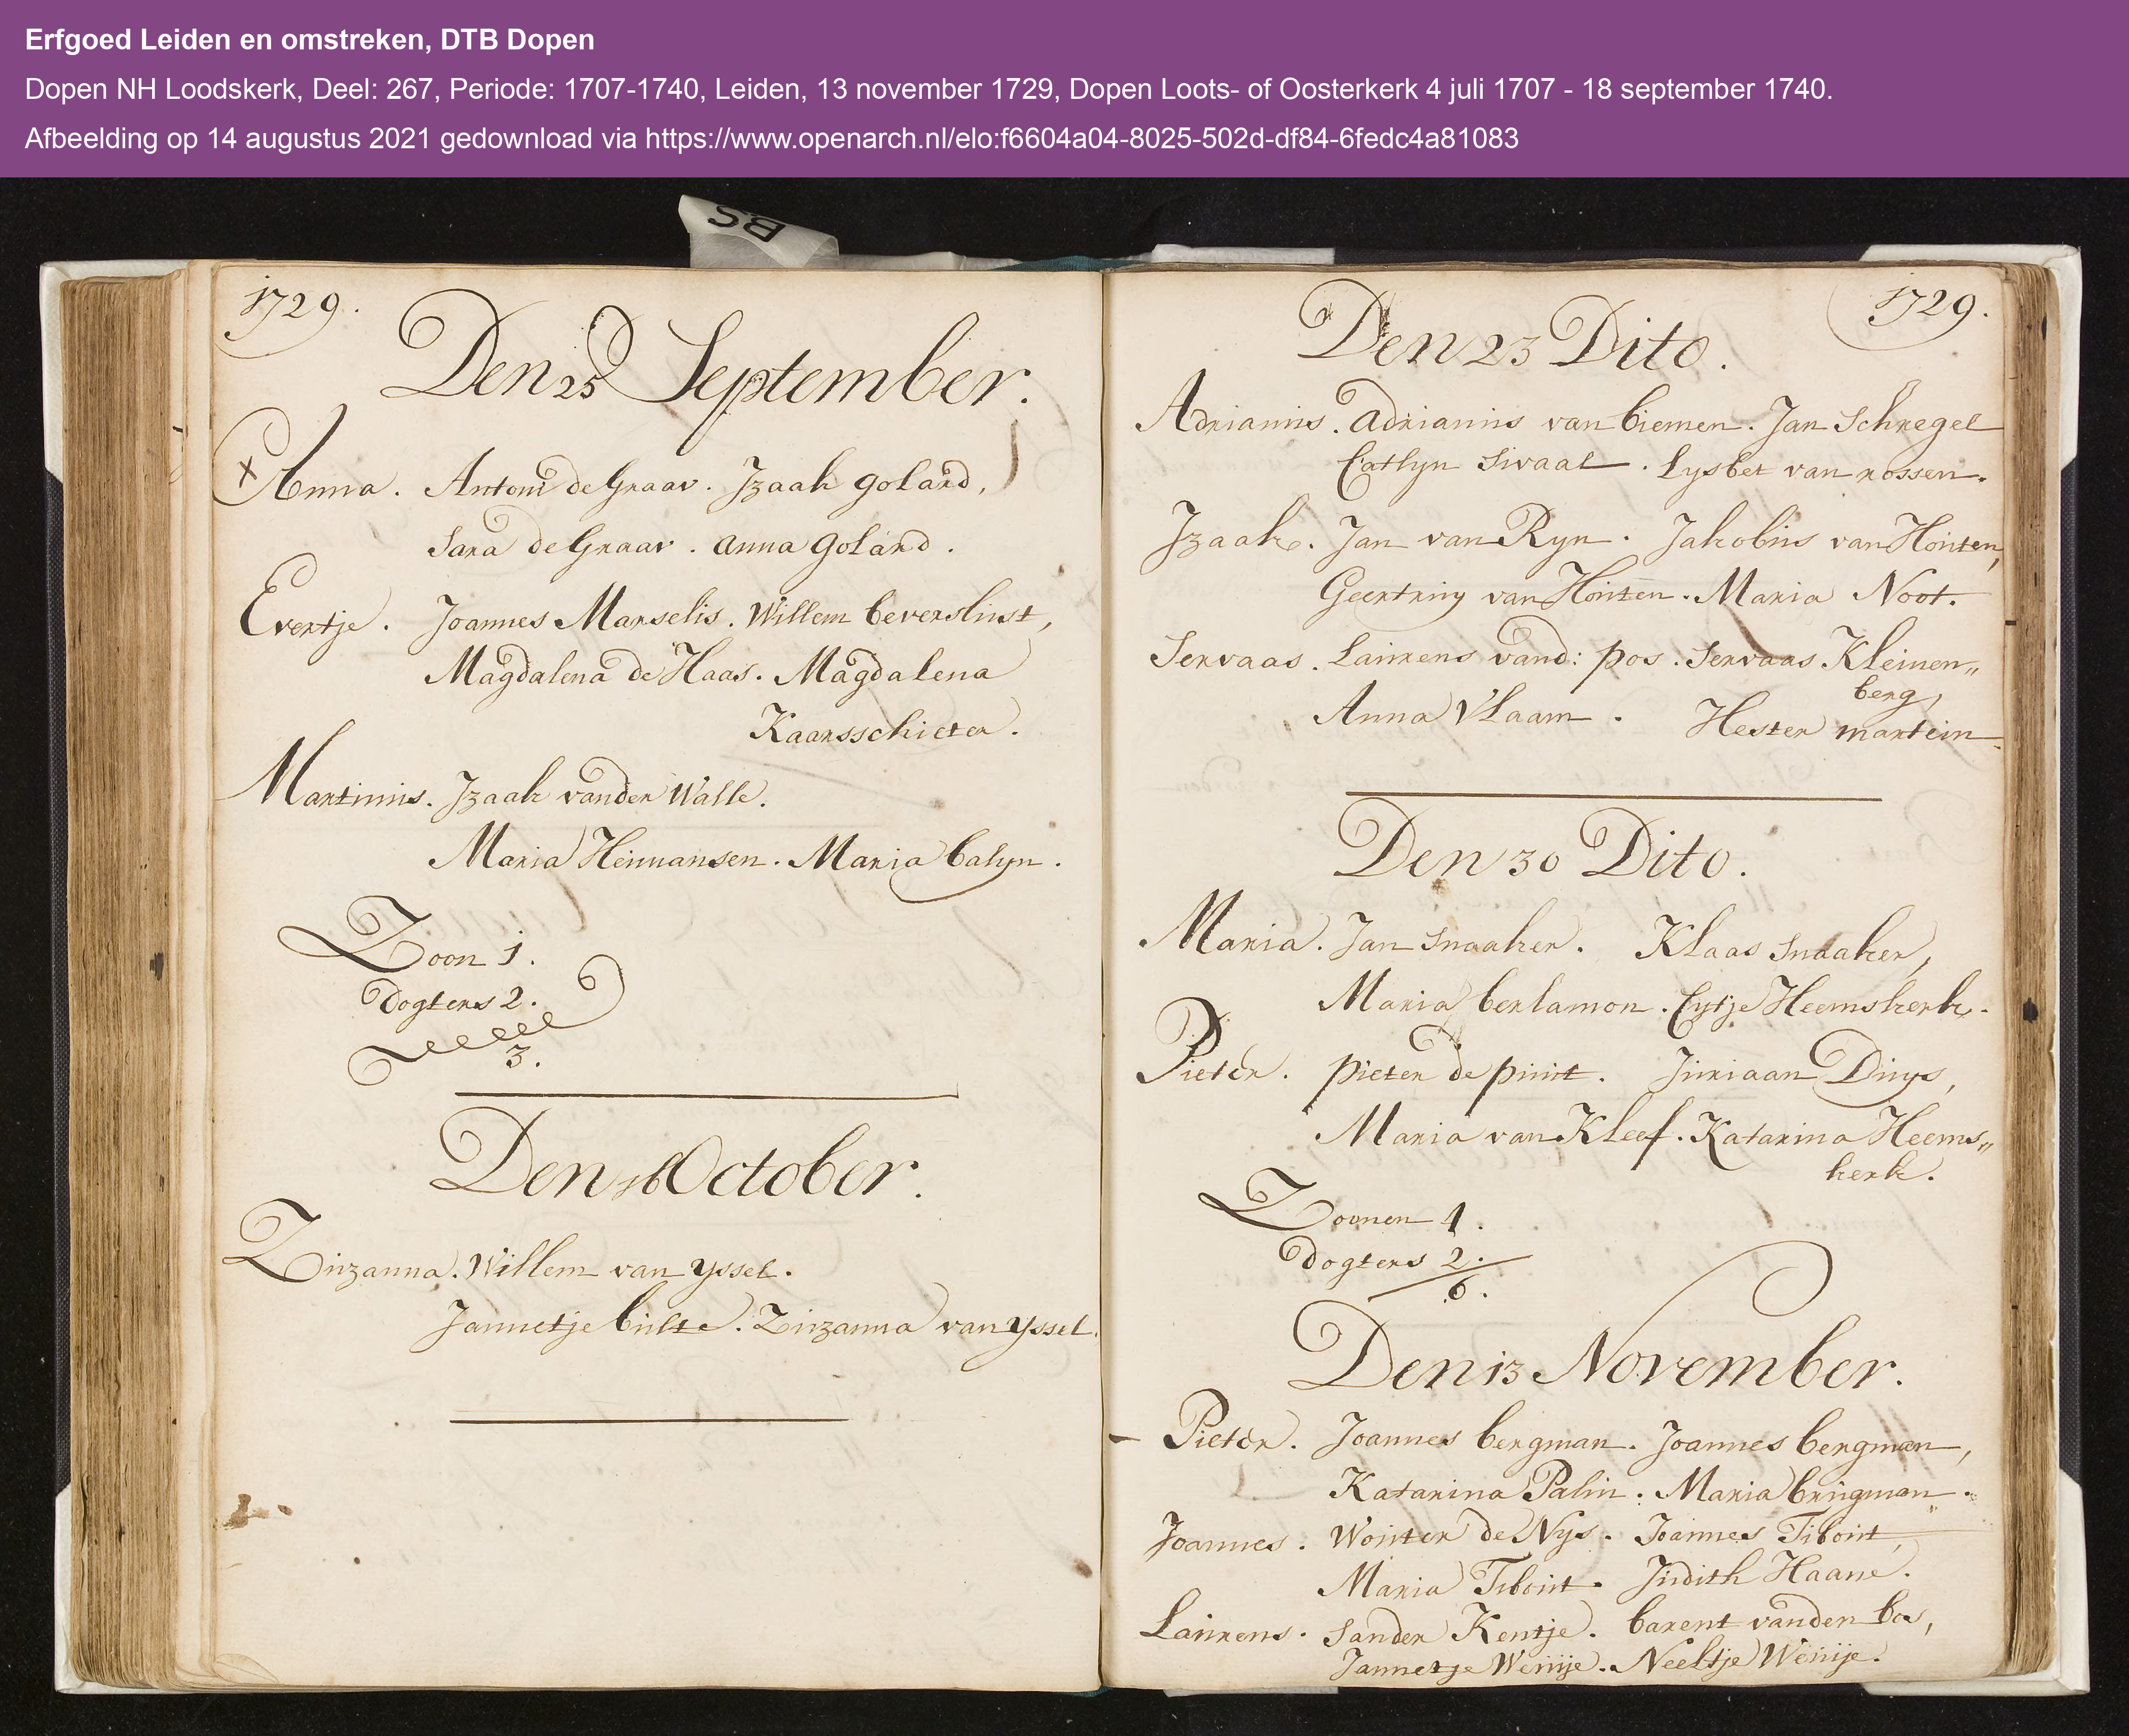 Erfgoed Leiden en omstreken, DTB Dopen
Dopen NH Loodskerk, Deel: 267, Periode: 1707-1740, Leiden, 13 november 1729, Dopen Loots- of Oosterkerk 4 juli 1707 - 18 september 1740.
Afbeelding op 14 augustus 2021 gedownload via https://www.openarch.nl/elo:f6604a04-8025-502d-df84-6fedc4a81083
BS
1729.
Den 25 September.
x Anna. Antoni de Graav. Izaak goland,
Sara de Graav. anna goland.
Evertje. Joannes Marselis. Willem beverslust,
Magdalena de Haas. Magdalena
Kaarsschieter.
Martinus. Izaak vander Walle.
Maria Heinnansen. Maria balyn.
Zoon 1.
dogters 2.
3.
Den 16 October.
Zuzanna. Willem van yssel.
Jannetje bulte. Zuzanna van yssel.
1729.
Den 23 Dito.
Adrianus. adrianus van biemen. Jan Schregel
Catlyn Swaal. Lysbet van rossen.
Izaak. Jan van Ryn. Jakobus van Houten,
Geertruy van Houten. Maria Noot.
Servaas. Laurens vand: pos. Servaas Kleinen„
berg,
Anna Vlaam. Hester martein
Den 30 Dito.
Maria. Jan Snaaker. Klaas Snaaker,
Maria berlamon. Eytje Heemskerk.
Pieter. pieter de puut. Juriaan Duys,
Maria van Kleef. Katarina Heems„
kerk.
Zoonen 4.
dogters 2.
6.
Den 13 November.
Pieter. Joannes bergman. Joannes bergman,
Katarina Palin. Maria brugman.
Joannes. Wouter de Nys. Joannes Tibout,
Maria Tibout. Judith Haane.
Laurens. Sander Kentje. barent vanden bos,
Jannetje Wenije. Neeltje Wenije.